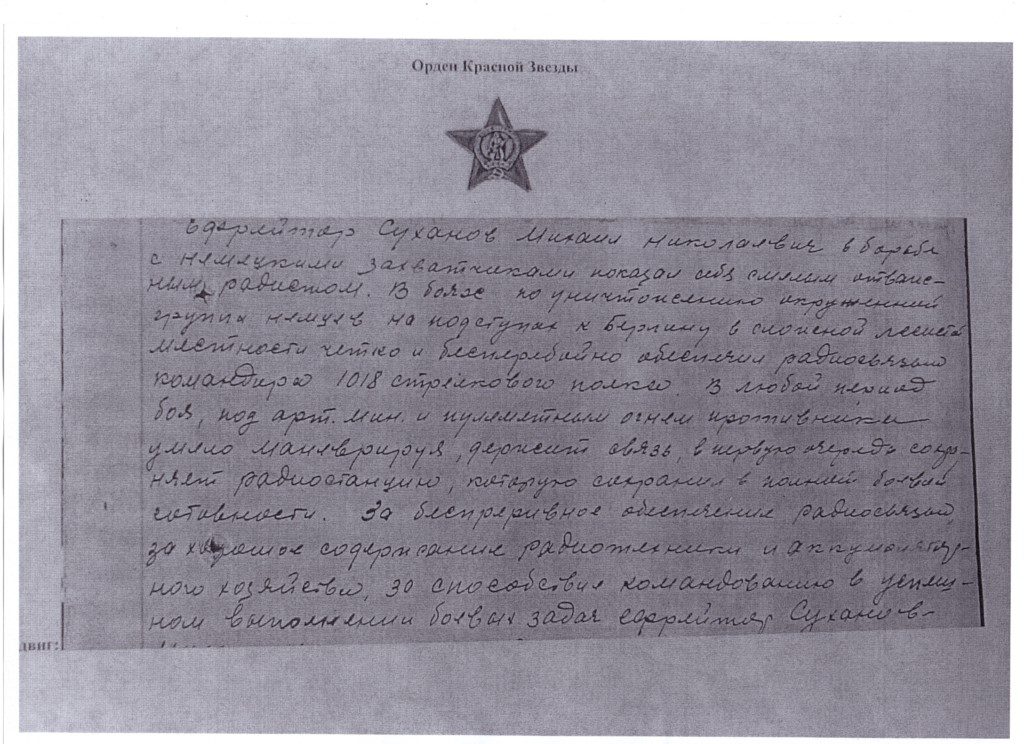 Орден Красной Звезды
Ефрейтор Суханов Михаил Николаевич в борьбе
с немецкими захватчиками показал себя смелым отваж-
ным радистом. В боях по уничтожению окруженной
группы немцев на подступах к Берлину в сложной лесистой
местности четко и бесперебойно обеспечил радиосвязью
командира 1018 стрелкового полка. В любой период
боя, под арт. мин. и пулеметным огнем противника
умело маневрируя, держит связь, в первую очередь сохра-
няет радиостанцию, которую сохранил в полной боевой
готовности. За беспрерывное обеспечение радиосвязью,
за хорошее содержание радиотехники и аккумулятор-
ного хозяйства, за способствие командованию в успеш-
ном выполнении боевых задач ефрейтор Суханов-
двиг: